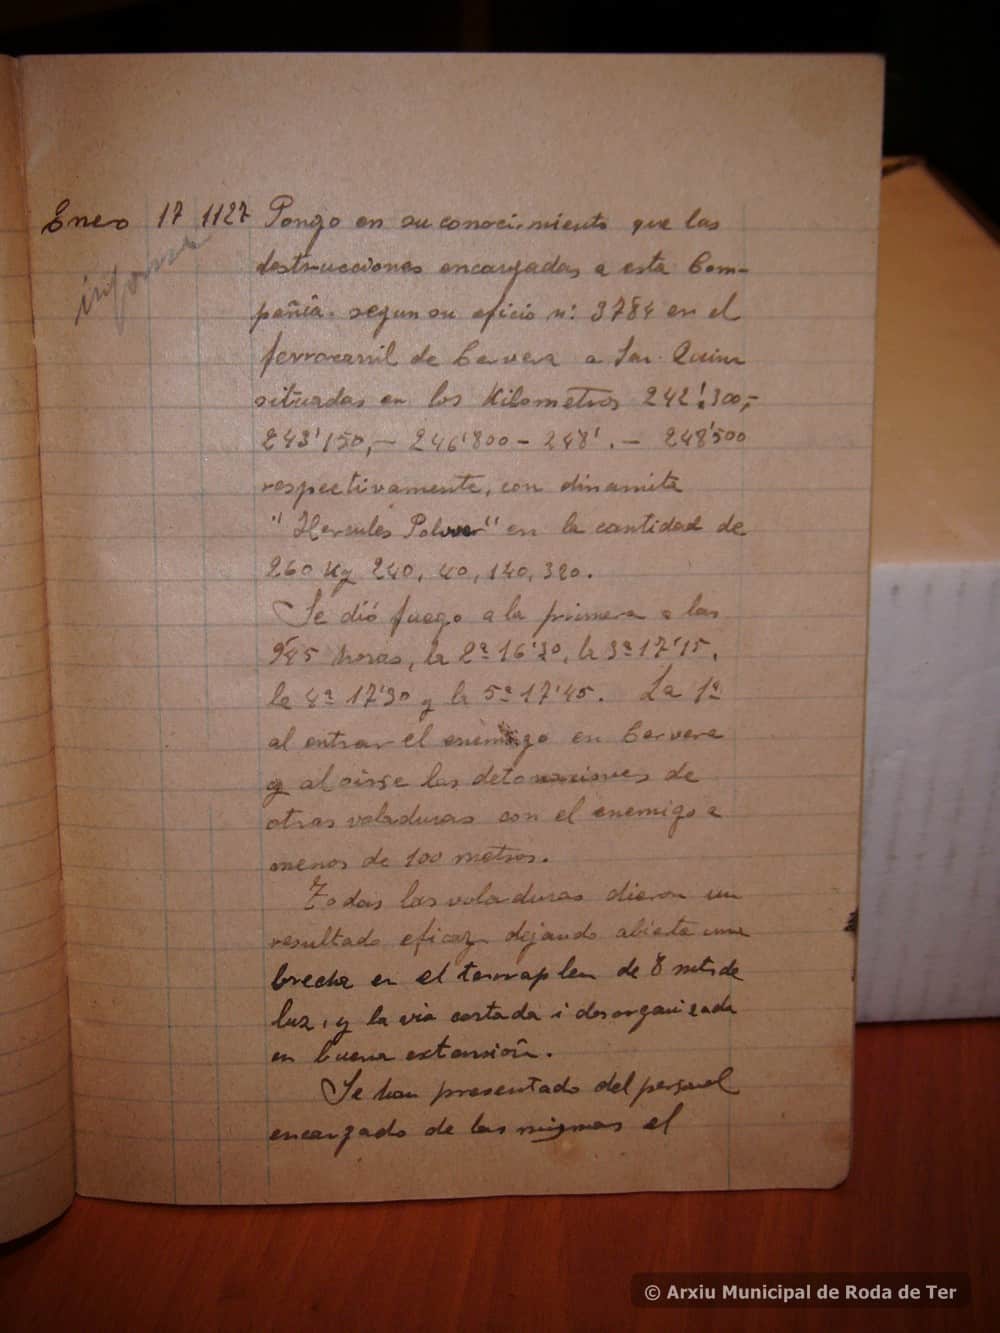 Enero 17 1127 Pongo en su conocimiento que las
informe
destrucciones encargadas a esta Com-
pañia. segun su oficio n: 3784 en el
ferrocarril de Cervera a San Quim
situadas en los Kilometros 242'300,-
243'150,- 246'800- 248'.- 248'500
respectivamente, con dinamita
"Hercules Polver" en la cantidad de
260 Kg 240, 40, 140, 320.
Se dió fuego a la primera a las
9'45 horas, la 2ª 16'30, la 3ª 17'15,
la 4ª 17'30 y la 5ª 17'45. La 1ª
al entrar el enemigo en Cervera
y al oirse las detonaciones de
otras voladuras con el enemigo a
menos de 100 metros.
Todas las voladuras dieron un
resultado eficaz dejando abierta una
brecha en el terraplen de 8 mts de
luz, y la via cortada i desorganizada
en buena extensión.
Se han presentado del personal
encargado de las mismas el
© Arxiu Municipal de Roda de Ter